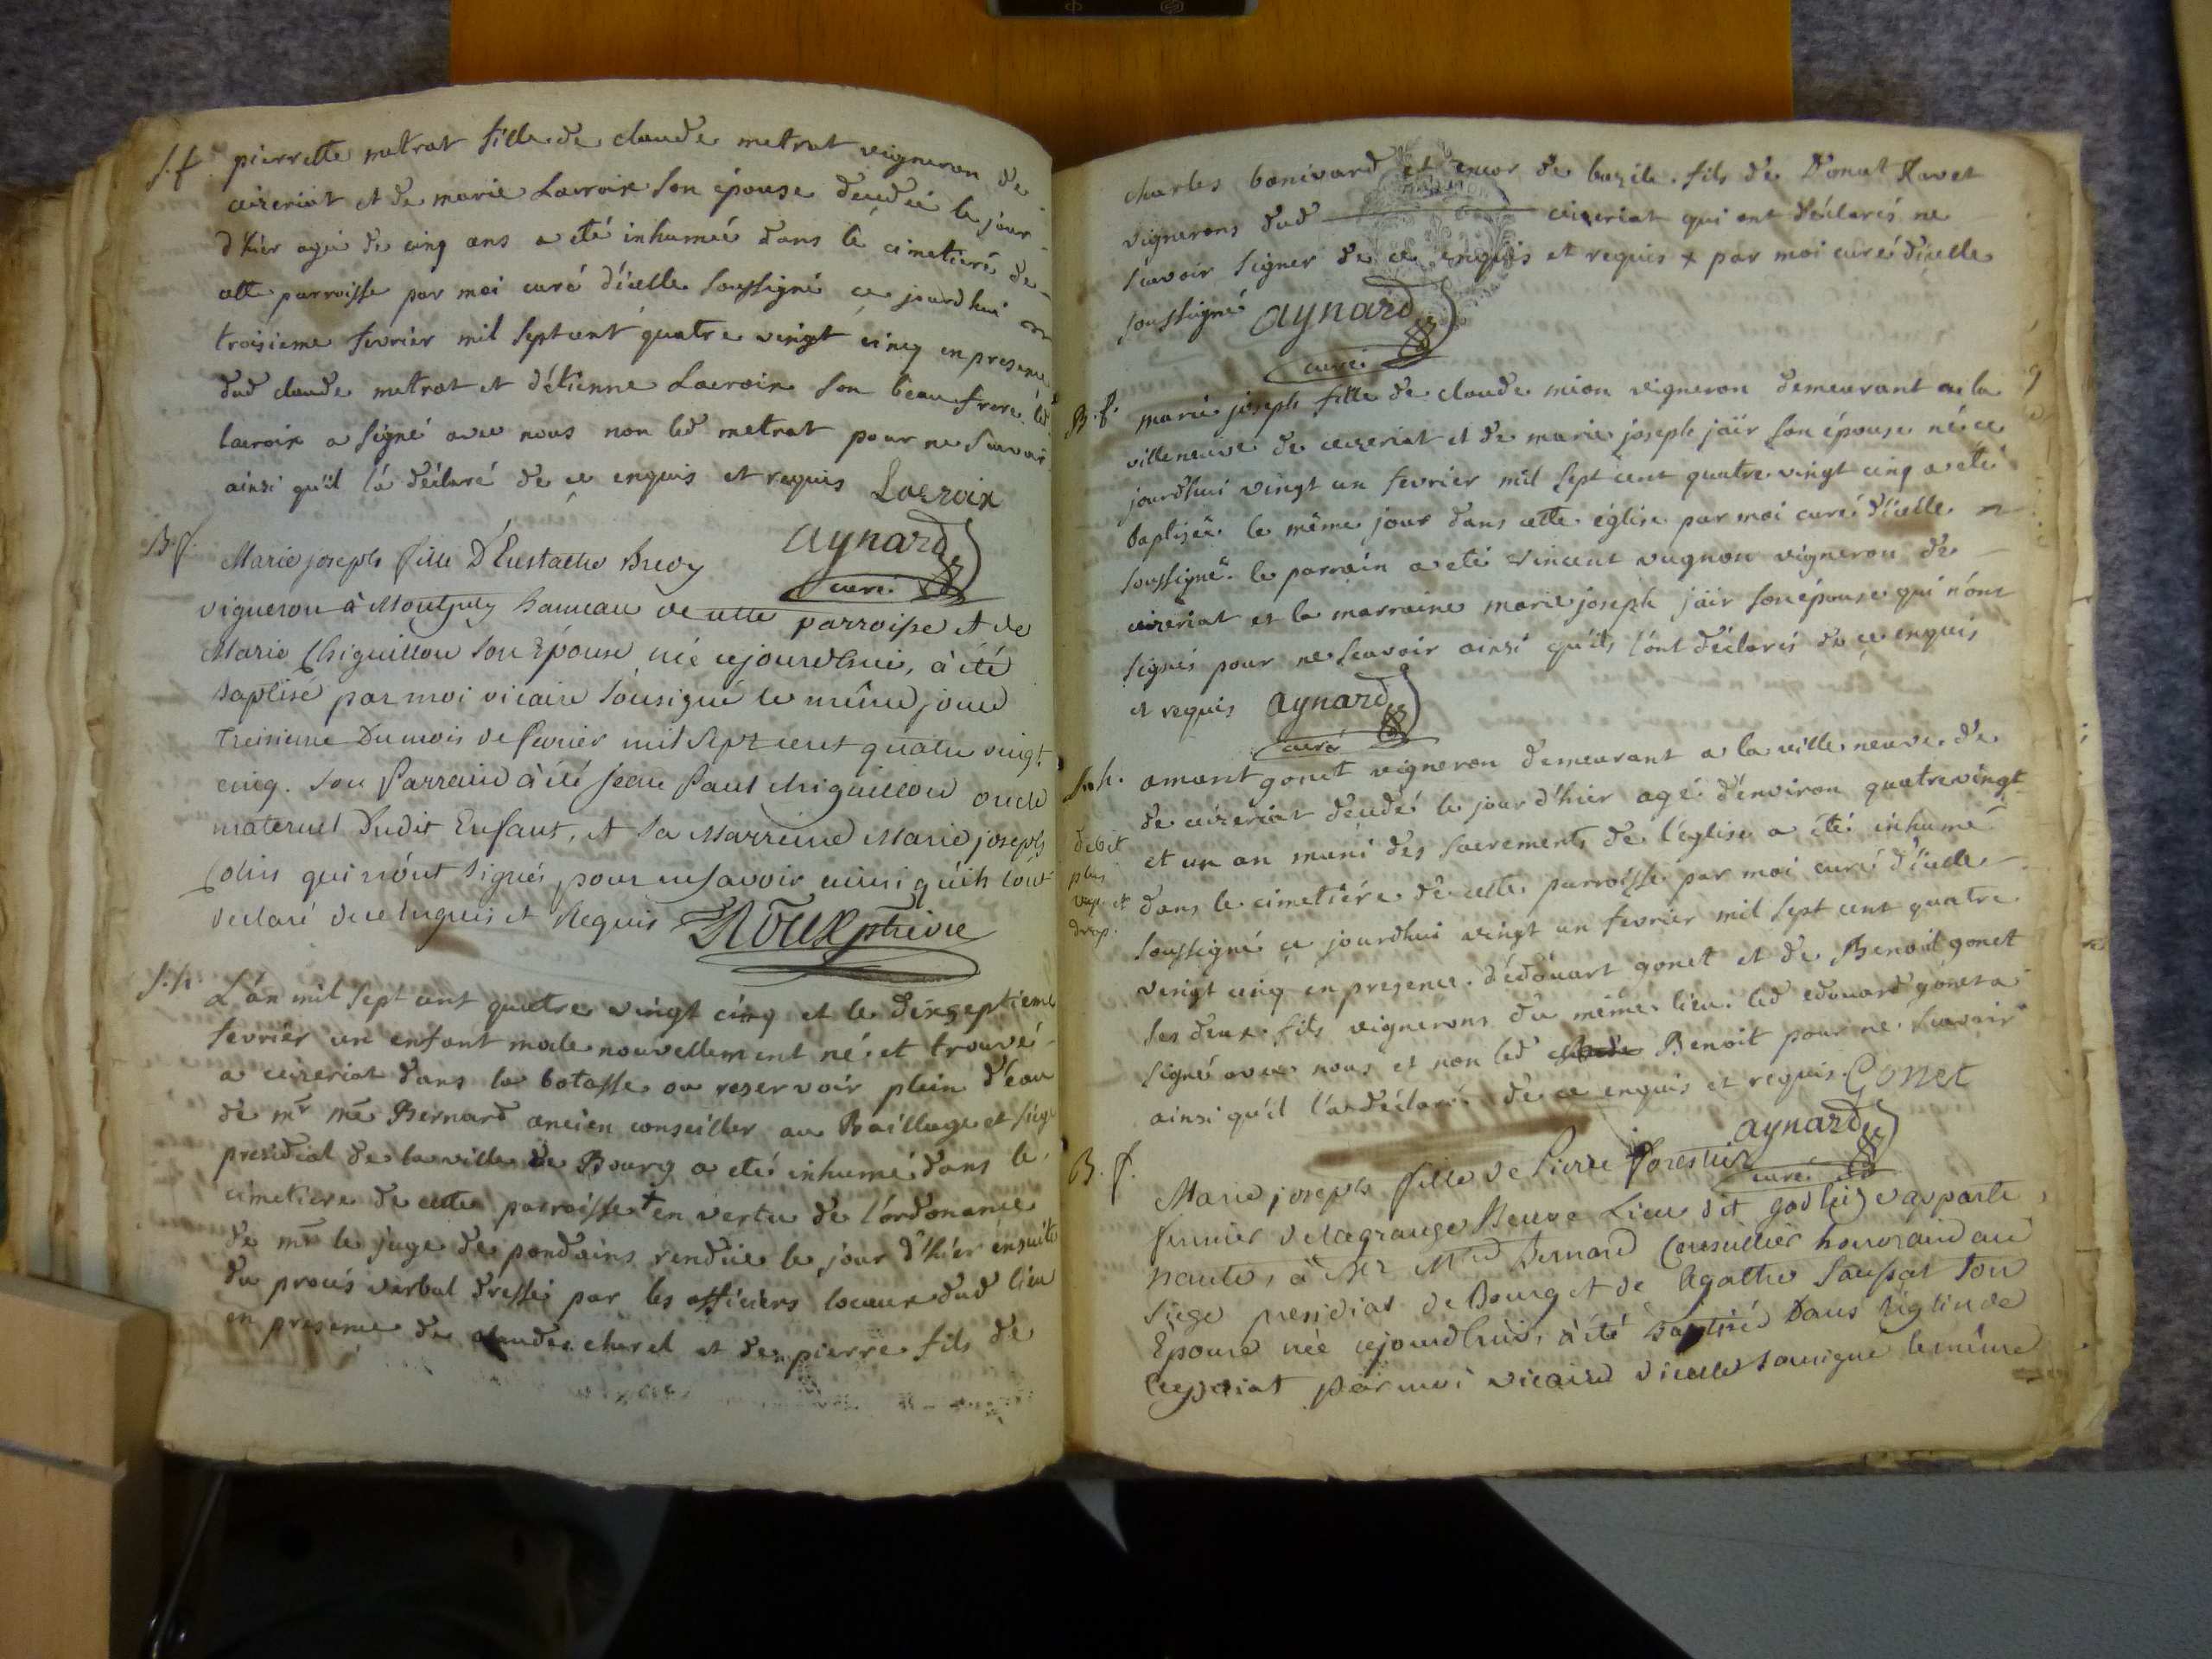 S.f. pierrette metrat fille de claude metrat vigneron de
ceizeriat et de marie Lacroix son épouse decedée le jour
d'hier agée de cinq ans a eté inhumée dans le cimetiere de
cette parroisse par moi curé d'icelle soussigné ce jourdhui
troisieme fevrier mil sept cent quatre vingt cinq en presence
dud claude metrat et d'étienne Lacroix son beau frere led
lacroix a signé avec nous non led metrat pour ne scavoir
ainsi qu'il l'a déclaré de ce enquis et requis Lacroix
aynard
curé
B.f.
Marie joseph fille D'Eustache
vigneron à hameau de cette parroisse et de
Marie Chiguillou son Epouse née cejourdhui, à été
baptisé par moi vicaire sousigné le même jour
Treisieme Du mois de fevrier mil Sept cent quatre vingt
cinq. Son Parrain à été Jean Paul chiguillou oncle
maternel Dudit Enfant, et Sa Marreine Marie joseph
Colin qui n'ont signés, pour ne savoir ainsi qu'ils l'ont
declaré de ce enquis et Requis Roux
S.h. L'an mil sept cent quatre vingt cinq et le dixseptieme
fevrier un enfant male nouvellement né et trouvé
a ceizeriat dans la botasse ou reservoir plein d'eau
de mr me Bernard ancien conseiller au Baillage et siege
presidial de la ville de Bourg a eté inhumé dans le
cimetiere de cette parroisse + en vertu de l'ordonance
de mr le juge de pondains rendue le jour d'hier ensuite
du procés verbal dressé par les officiers locaux dud lieu
en presence de claude churel et de pierre fils de
charles bonivard et encor de bazile fils de Donat Ravet
vignerons dud ceizeriat qui ont déclarés ne
scavoir signer de ce enquis et requis x par moi curé d'icelle
soussigné aynard
curé
B.f. marie joseph fille de claude mion vigneron demeurant a la
villeneuve de ceizeriat et de marie joseph jair son épouse née ce
jourdhui vingt un fevrier mil sept cent quatre vingt cinq a eté
baptisée le même jour dans cette église par moi curé d'icelle
soussigné le parrain a eté vincent vugnon vigneron de
ceizeriat et la marraine marie joseph jair son épouse qui n'ont
signés pour ne scavoir ainsi qu'ils l'ont déclarés de ce enquis
et requis aynard
curé
S.h. amant gonet vigneron demeurant a la ville neuve de
de ceizeriat decedé le jour d'hier agé d'environ quatrevingt
et un an muni des sacrements de l'église a été inhumé
dans le cimetiére de cette parroisse par moi curé d'icelle
soussigné ce jourdhui vingt un fevrier mil sept cent quatre
vingt cinq en presence d'édouart gonet et de Benoit gonet
ses deux fils vignerons du même lieu led edouard gonet a
signé avec nous et non led Benoit pour ne scavoir
ainsi qu'il l'a déclaré de ce enquis et requis Gonet
aynard
curé
B.f.
Marie joseph fille de Pierre Forestier
fermier de la grange Neuve Lieu dit apparte
nante, à Mr Bernard Conseiller honoraire au
Siege presidial de Bourg et de Agathe son
Epouse née cejourdhui, à été baptisé Dans l'église de
Ceyzeriat par moi vicaire d'icelle sousigné le même